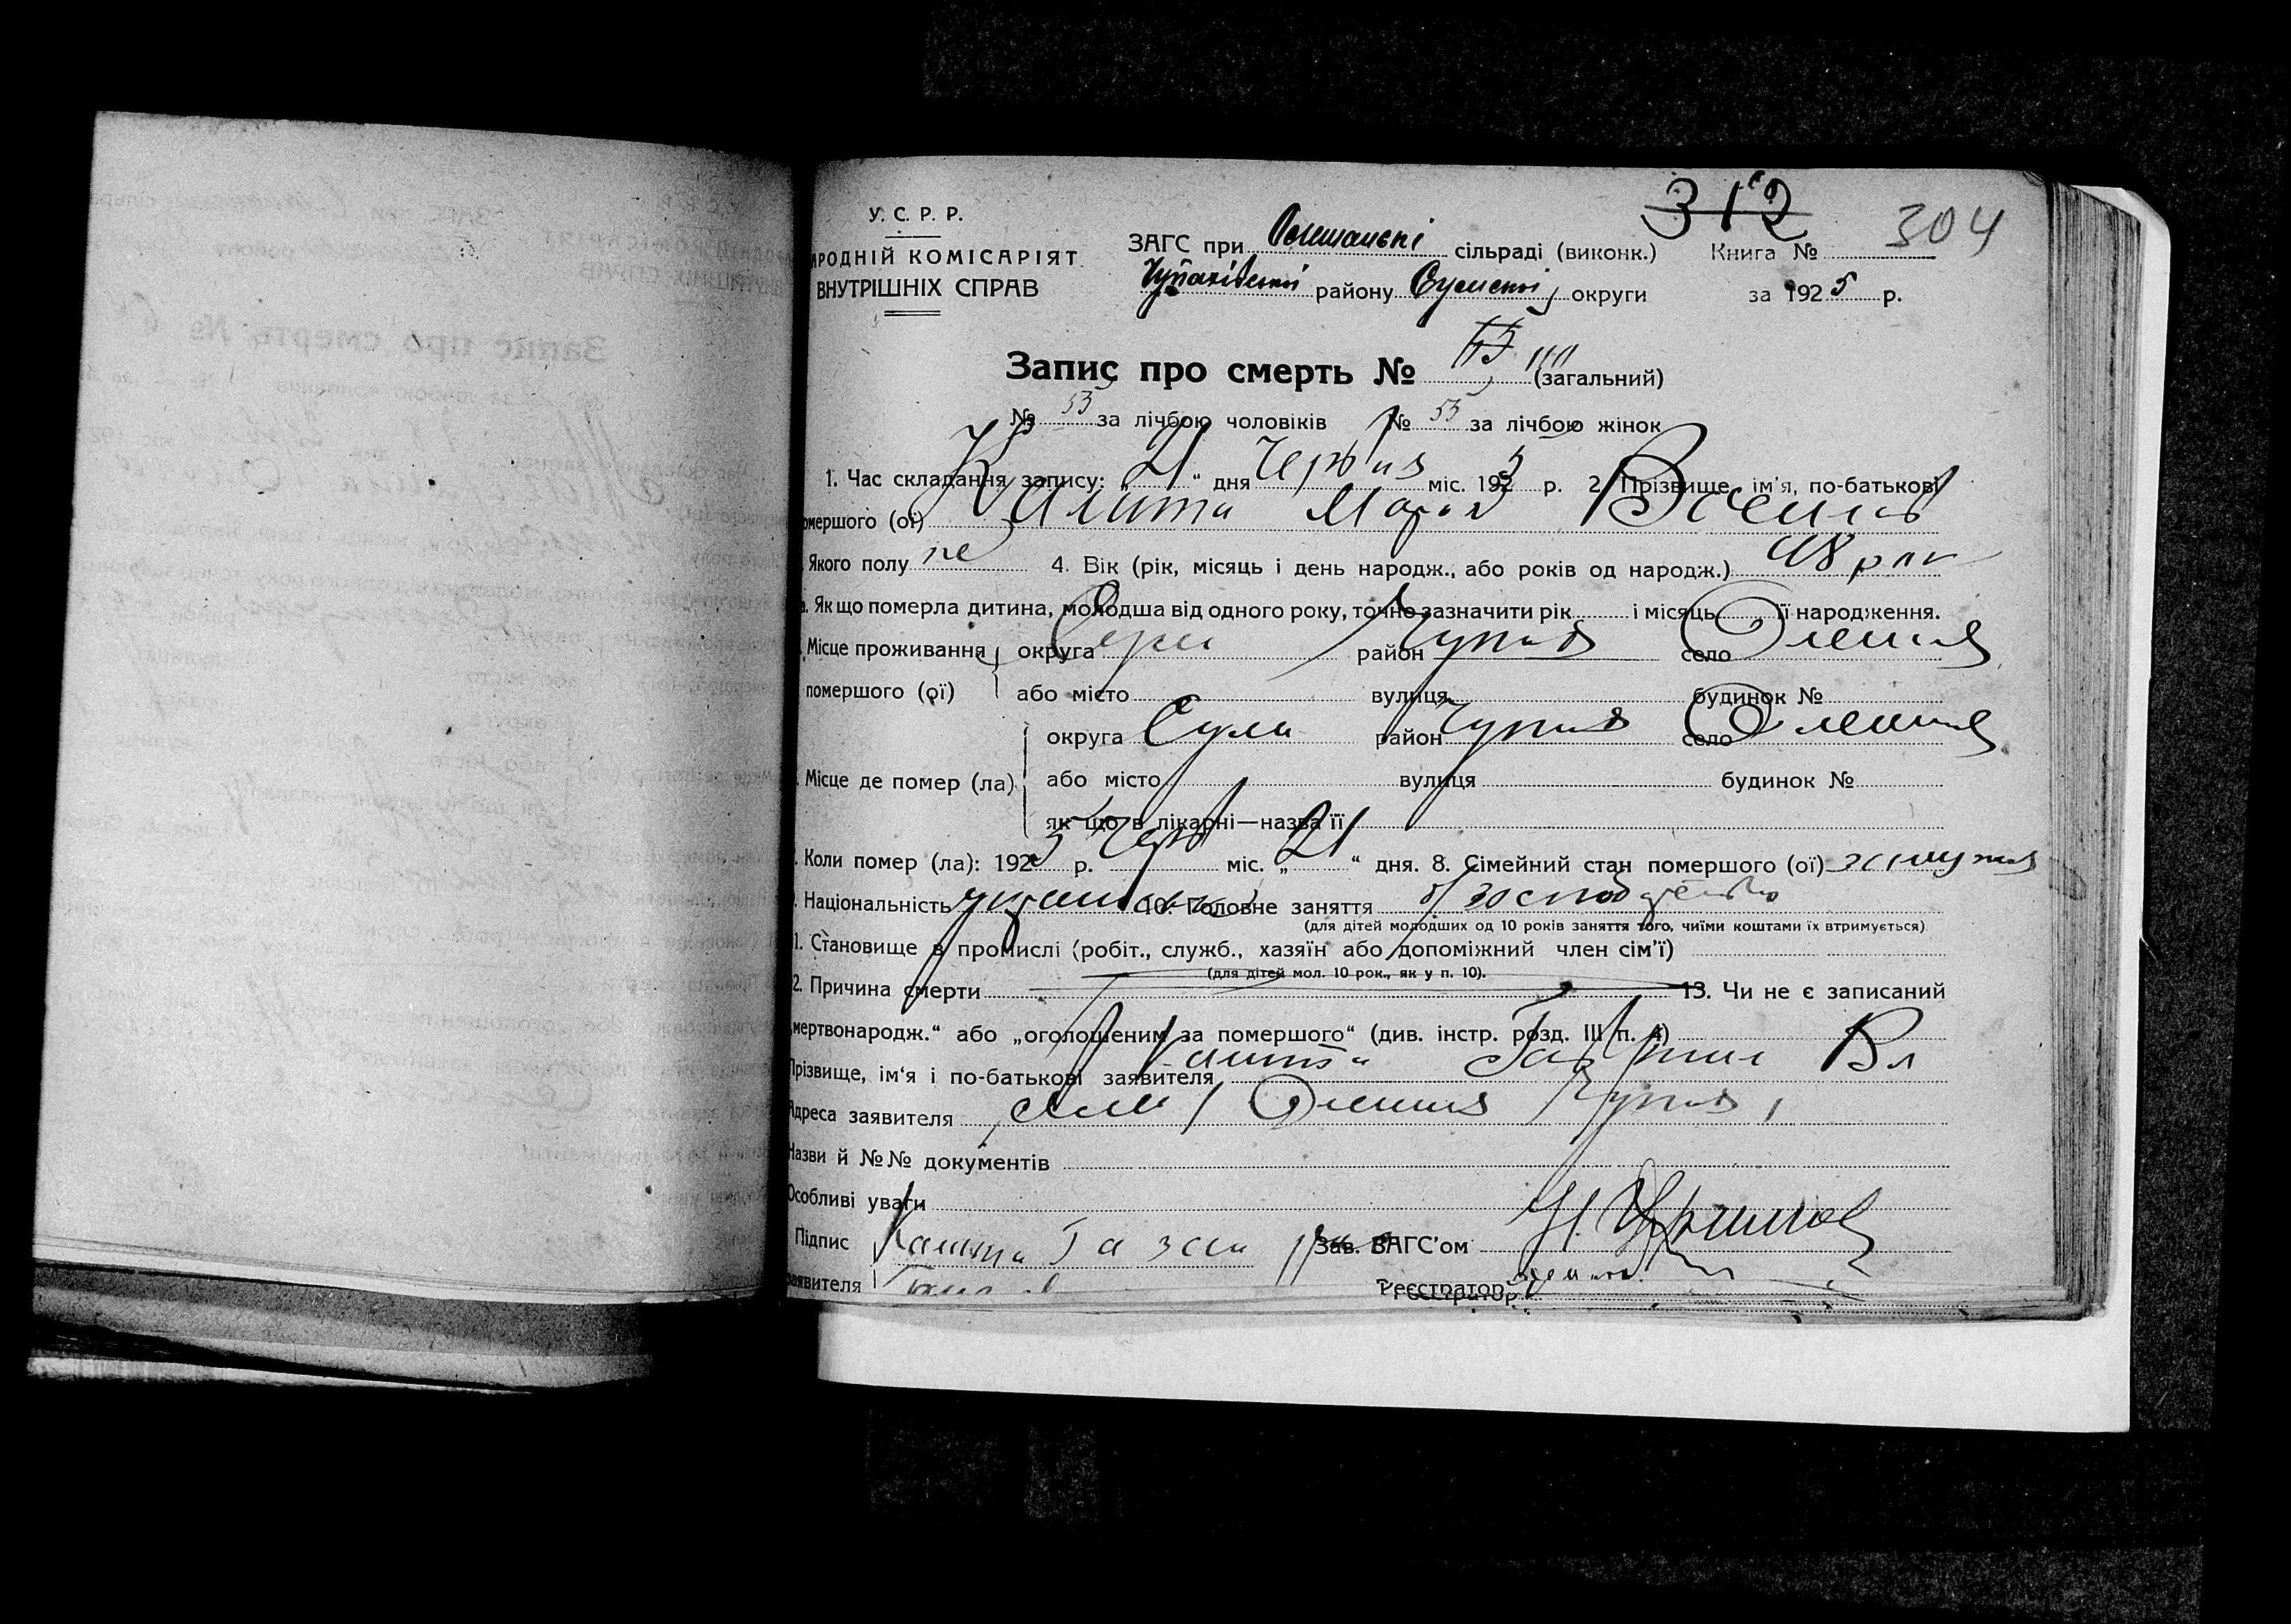 312 304
У. С. Р. Р.
РОДНІЙ КОМІСАРІЯТ
ВНУТРІШНІХ СПРАВ
ЗАГС при сільраді (виконк.) Книга №
Чупахівської району Сумської округи за 1925 р.
Запис про смерть № 110 (загальний)
№ 53 за лічбою чоловіків № 53 за лічбою жінок
1. Час складання запису: „21“ дня Червня міс. 1925 р. 2. Прізвище, ім'я, по-батькові
омершого (ої) Калита Марія
Якого полу 4. Вік (рік, місяць і день народж., або років од народж.) 48 рок
а. Якщо померла дитина, молодша від одного року, точно зазначити рік і місяць її народження.
Місце проживання округа Сум район Чупах село Олешня
помершого (ої) або місто вулиця будинок №
округа Суми район Чупах село Олешня
Місце де помер (ла) або місто вулиця будинок №
як що в лікарні—назва її
Коли помер (ла): 1925 р. Черв міс. „21“ дня. 8. Сімейний стан помершого (ої) замужня
Національність 10. Головне заняття
(для дітей молодших од 10 років заняття того, чиїми коштами їх втримується)
1. Становище в промислі (робіт., служб., хазяїн або допоміжний член сім'ї)
(для дітей мол. 10 рок., як у п. 10).
2. Причина смерти 13. Чи не є записаний
мертвонародж.“ або „оголошеним за помершого“ (див. інстр. розд. III п. 4)
Прізвище, ім'я і по-батькові заявителя Калита
Адреса заявителя село Олешня Чупах
Назви й №№ документів
Особливі уваги
Підпис Калита Зав. ЗАГС'ом
заявителя Реєстратор